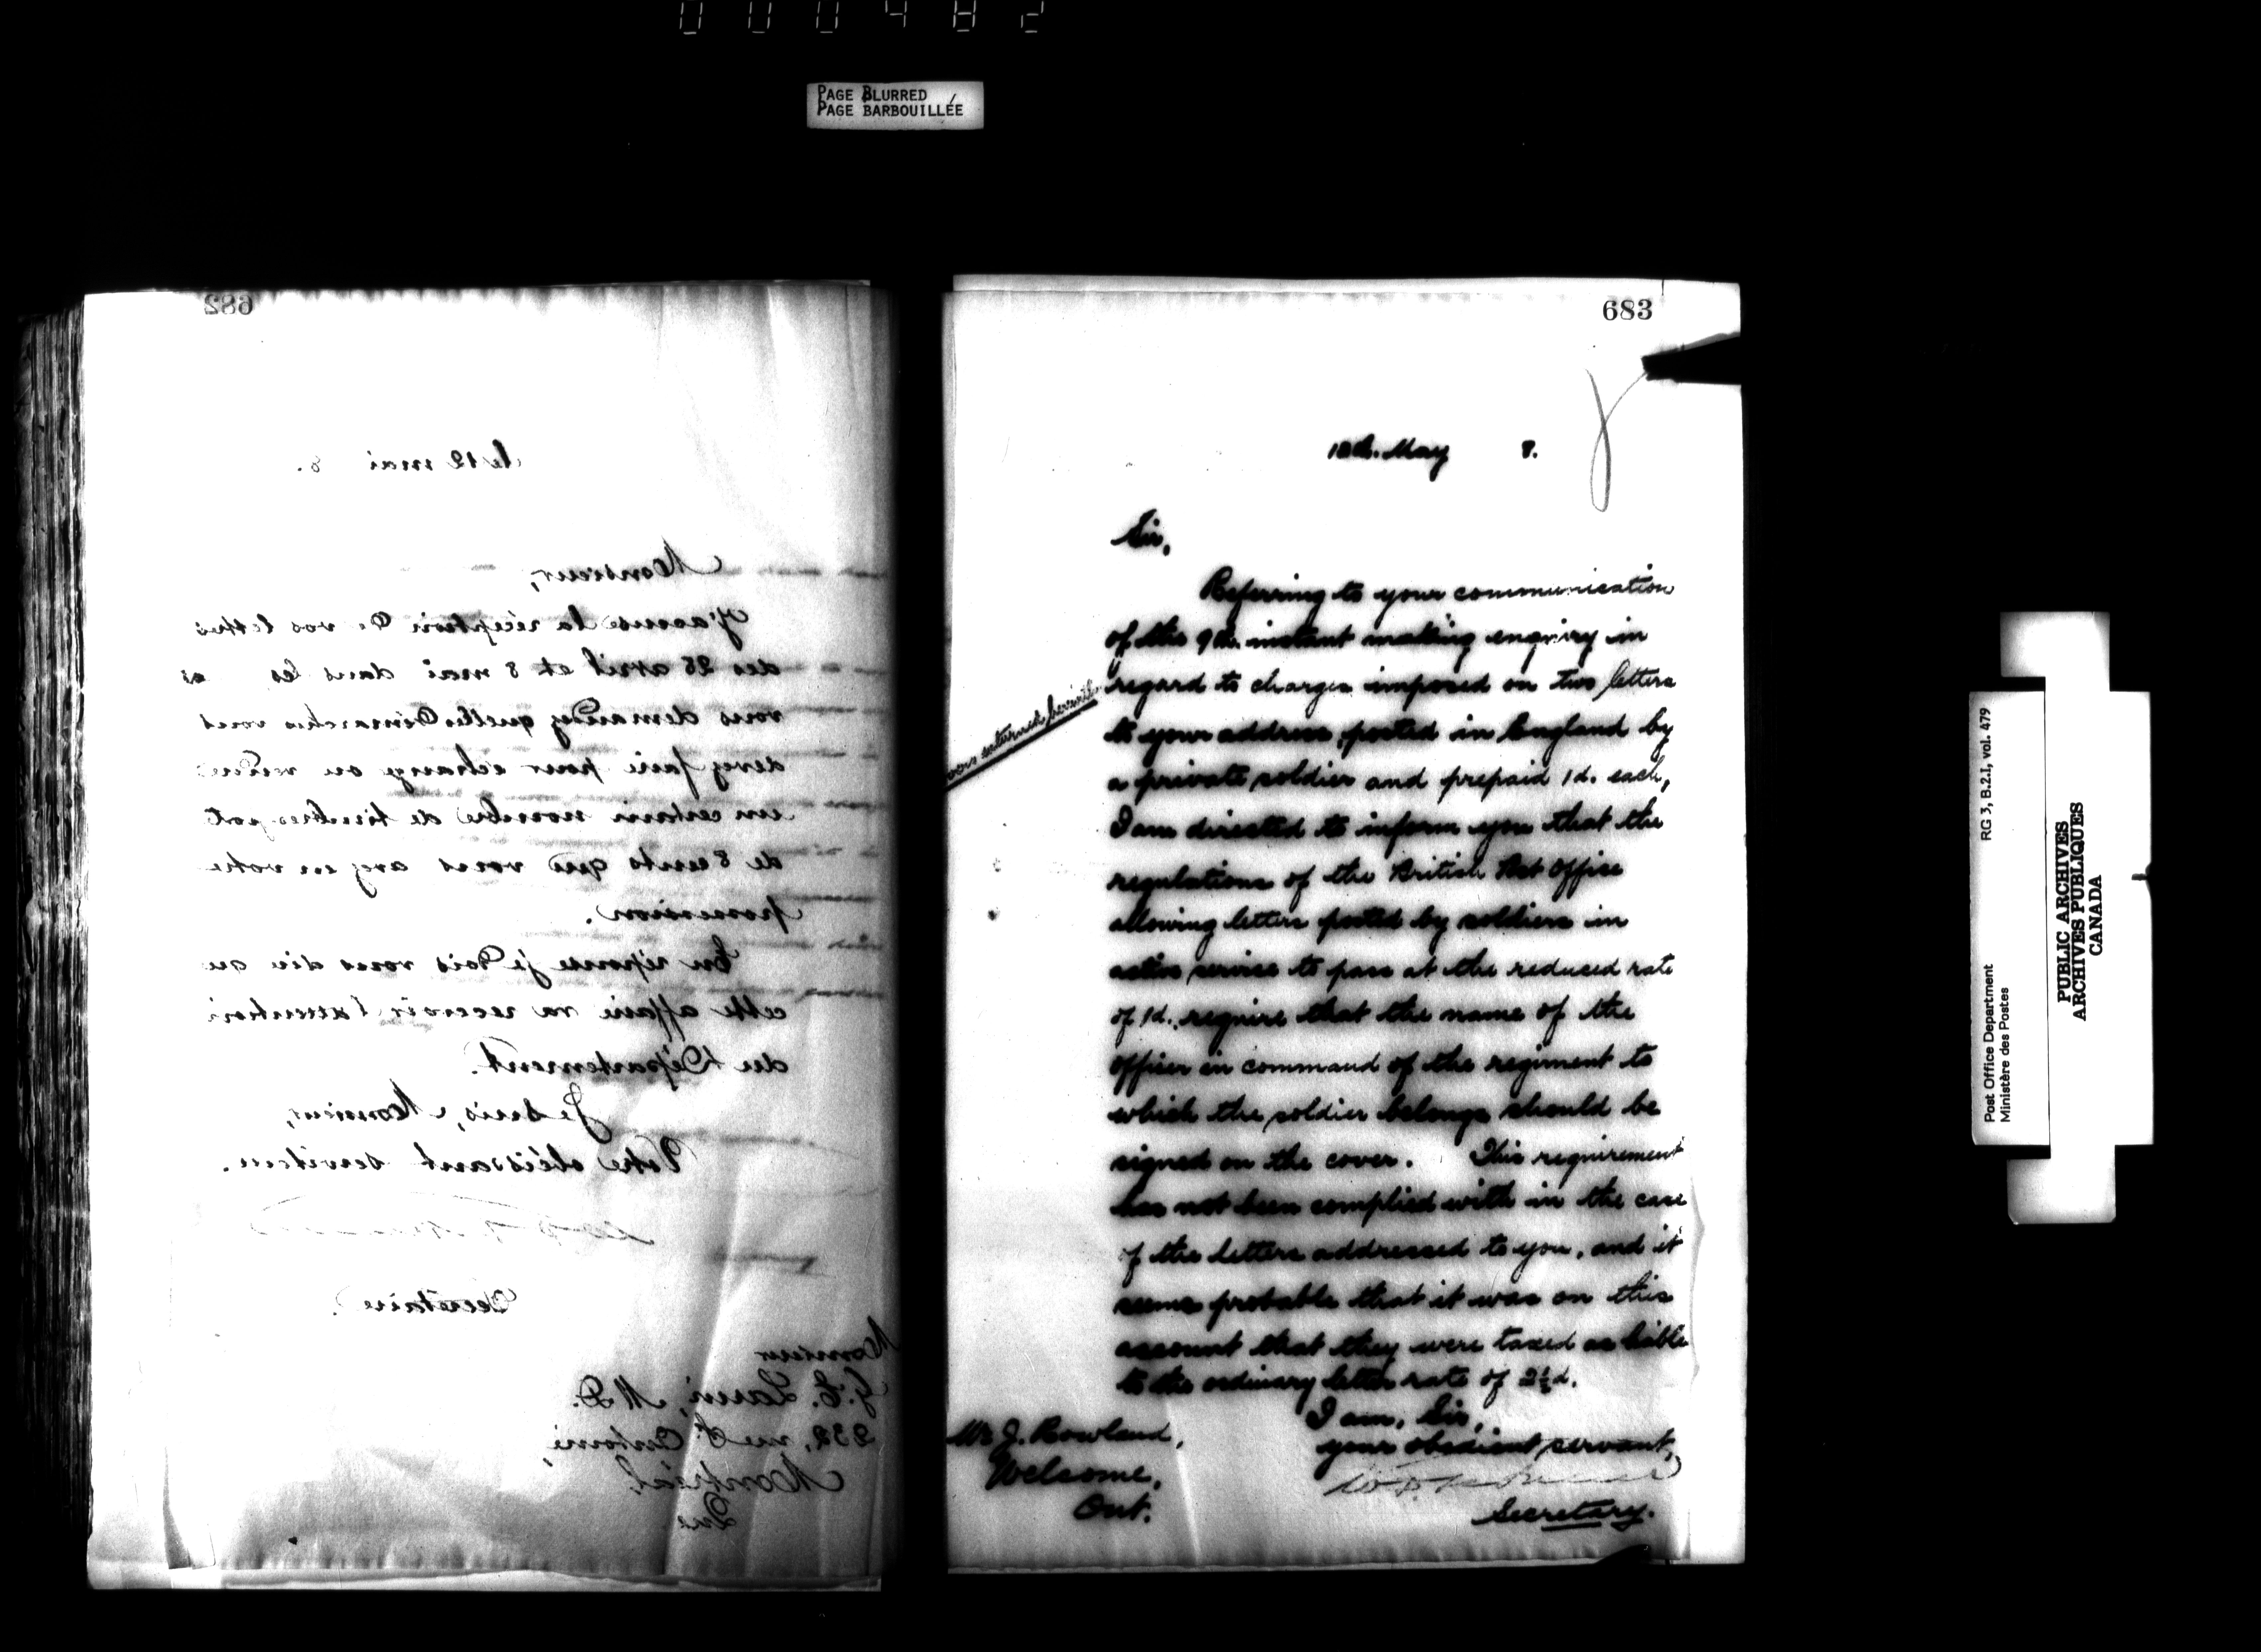 000482
PAGE BLURRED
PAGE BARBOUILLÉE
682
le 12 mai 8.
Monsieur,
J'accuse la réception de vos lettres
des 28 avril et 8 mai dans les
vous demandez quelles démarches vous
devez faire pour échange ou
un certain nombre de timbres-post
de 8 cents que vous avez en votre
possession.
En réponse je dois vous dire que
cette affaire va recevoir l'attention
du Département.
Je suis, Monsieur,
Votre obéissant serviteur.
Secrétaire.
Monsieur
M.D.
232, rue St Antoine,
Montréal,
Que
683
12th. May 8.
Sir,
Referring to your communication
of the 9th. instant making enquiry in
regard to charges imposed on two letters
to your address, posted in England by
a private soldier and prepaid 1d. each,
I am directed to inform you that the
regulations of the British Post Office
allowing letters posted by soldiers in
active service to pass at the reduced rate
of 1d., require that the name of the
officer in command of the regiment to
which the soldier belongs should be
signed on the cover. This requirement
has not been complied with in the case
of the letters addressed to you, and it
seems probable that it was on this
account that they were taxed as liable
to the ordinary letter rate of 2½d.
I am, Sir,
your obedient servant,
Secretary.
Mr J. Rowland,
Welcome,
Ont.
covers returned herewith
Post Office Department RG 3, B.2.I, vol. 479
Ministère des Postes
PUBLIC ARCHIVES
ARCHIVES PUBLIQUES
CANADA